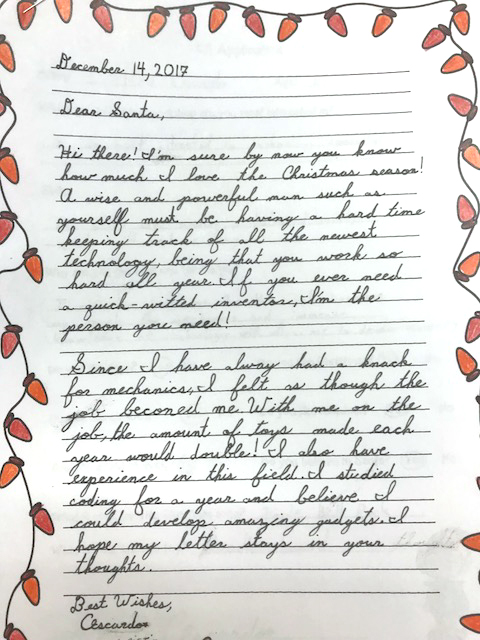 December 14, 2017
Dear Santa,
Hi there! I'm sure by now you know
how much I love the Christmas season!
A wise and powerful man such as
yourself must be having a hard time
keeping track of all the newest
technology, being that you work so
hard all year. If you ever need
a quick-witted inventor, I'm the
person you need!
Since I have alway had a knack
for mechanics, I felt as though the
job beconed me. With me on the
job, the amount of toys made each
year would double! I also have
experience in this field. I studied
coding for a year and believe I
could develop amazing gadgets. I
hope my letter stays in your
thoughts.
Best Wishes,